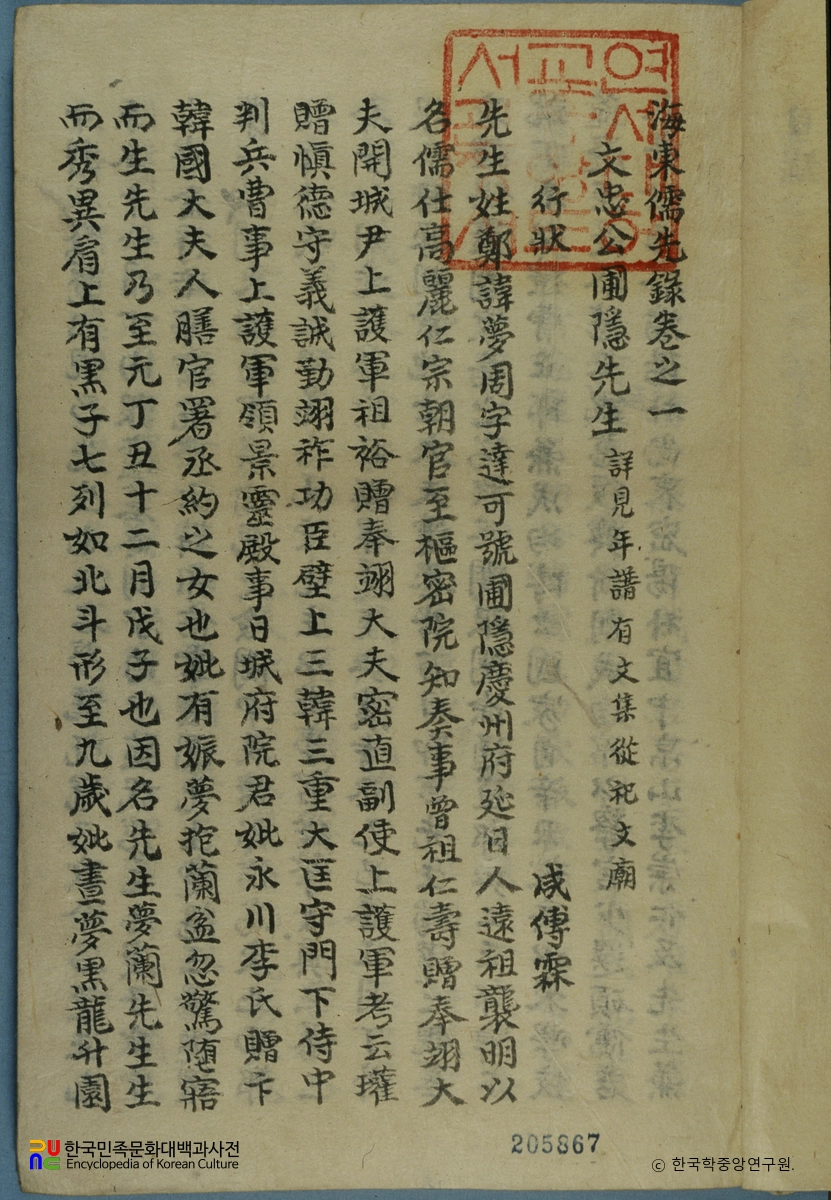 海東儒先錄卷之一
文忠公圃隱先生 詳見年譜有文集從祀文廟
行狀 咸傅霖
先生姓鄭諱夢周字達可號圃隱慶州府延日人遠祖襲明以
名儒仕高麗仁宗朝官至樞密院知奏事曾祖仁壽贈奉翊大
夫開城尹上護軍祖裕贈奉翊大夫密直副使上護軍考云瓘
贈愼德守義誠勤翊祚功臣壁上三韓三重大匡守門下侍中
判兵曹事上護軍領景靈殿事日城府院君妣永川李氏贈卞
韓國大夫人膳官署丞約之女也妣有娠夢抱蘭盆忽驚墮寤
而生先生乃至元丁丑十二月戊子也因名先生夢蘭先生生
而秀異肩上有黑子七列如北斗形至九歲妣晝夢黑龍升園
205867
한국민족문화대백과사전
Encyclopedia of Korean Culture
© 한국학중앙연구원.